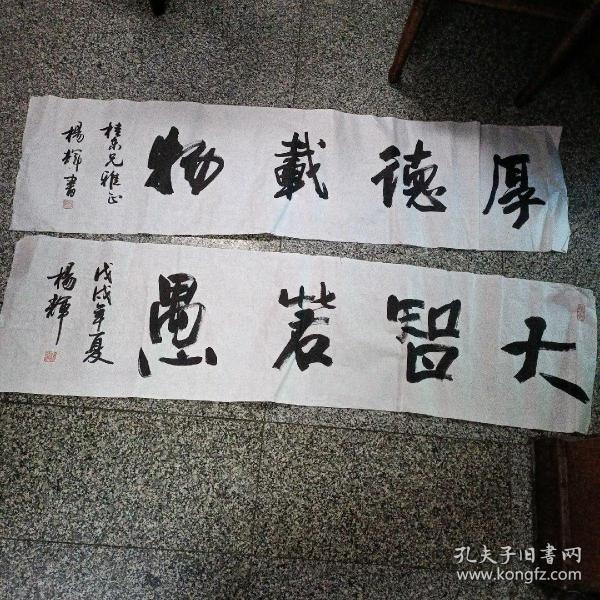 厚德載物
桂東兄雅正
楊輝書
大智若愚
戊戌年夏
楊輝
孔夫子旧書网
www.kongfz.com